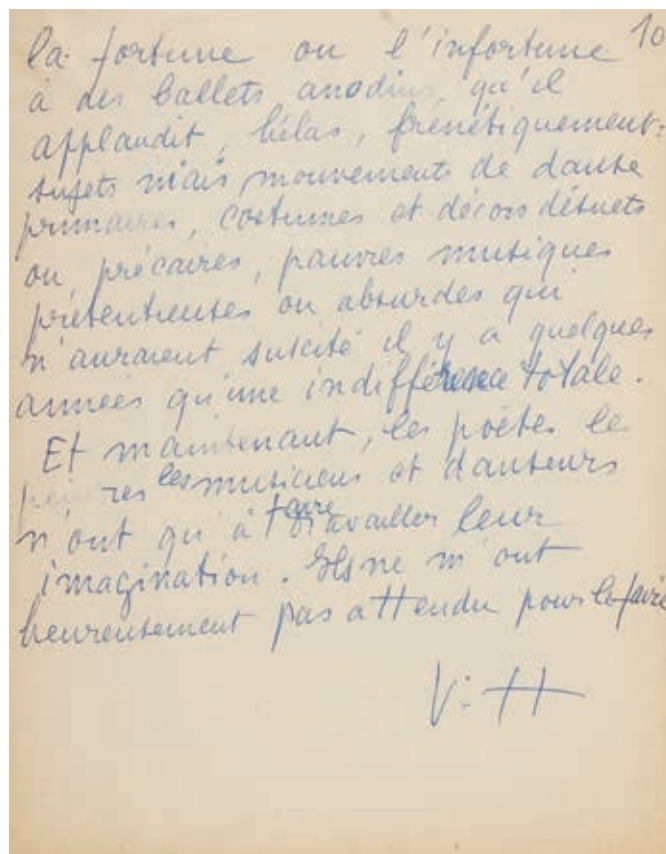 10
la fortune ou l'infortune
à des ballets anodins, qu'il
applaudit, hélas, frénétiquement:
sujets niais, mouvements de danse
primaires, costumes et décors désuets
ou précaires, pauvres musiques
prétentieuses ou absurdes qui
n'auraient suscité il y a quelques
années qu'une indifférence totale.
Et maintenant, les poètes les
les musiciens et danseurs
n'ont qu'à faire travailler leur
imagination. Ils ne m'ont
heureusement pas attendu pour le faire
V. H